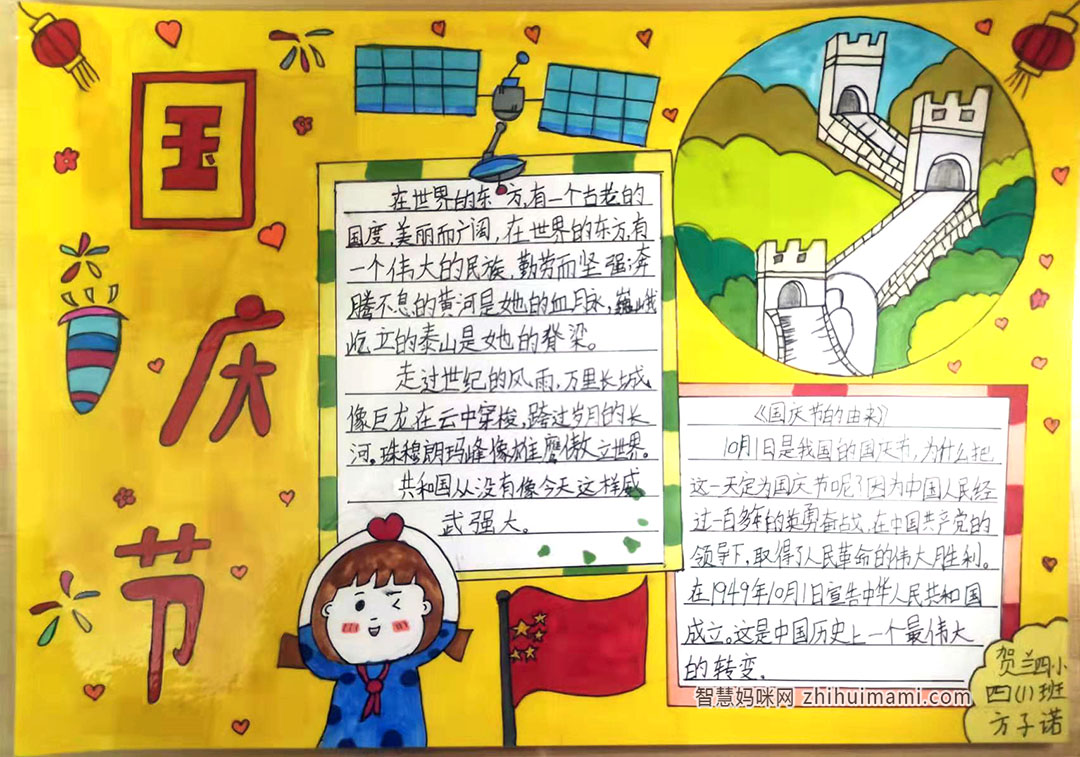 国
庆
节
在世界的东方,有一个古老的
国度,美丽而广阔,在世界的东方,有
一个伟大的民族,勤劳而坚强;奔
腾不息的黄河是她的血脉,巍峨
屹立的泰山是她的脊梁。
走过世纪的风雨,万里长城
像巨龙在云中穿梭,跨过岁月的长
河。珠穆朗玛峰像雄鹰傲立世界。
共和国从没有像今天这样威
武强大。
《国庆节的由来》
10月1日是我国的国庆节,为什么把
这一天定为国庆节呢?因为中国人民经
过一百多年的英勇奋战,在中国共产党的
领导下,取得了人民革命的伟大胜利。
在1949年10月1日宣告中华人民共和国
成立。这是中国历史上一个最伟大
的转变。
智慧妈咪网 zhihuimami.com
贺兰四小
四(1)班
方子诺